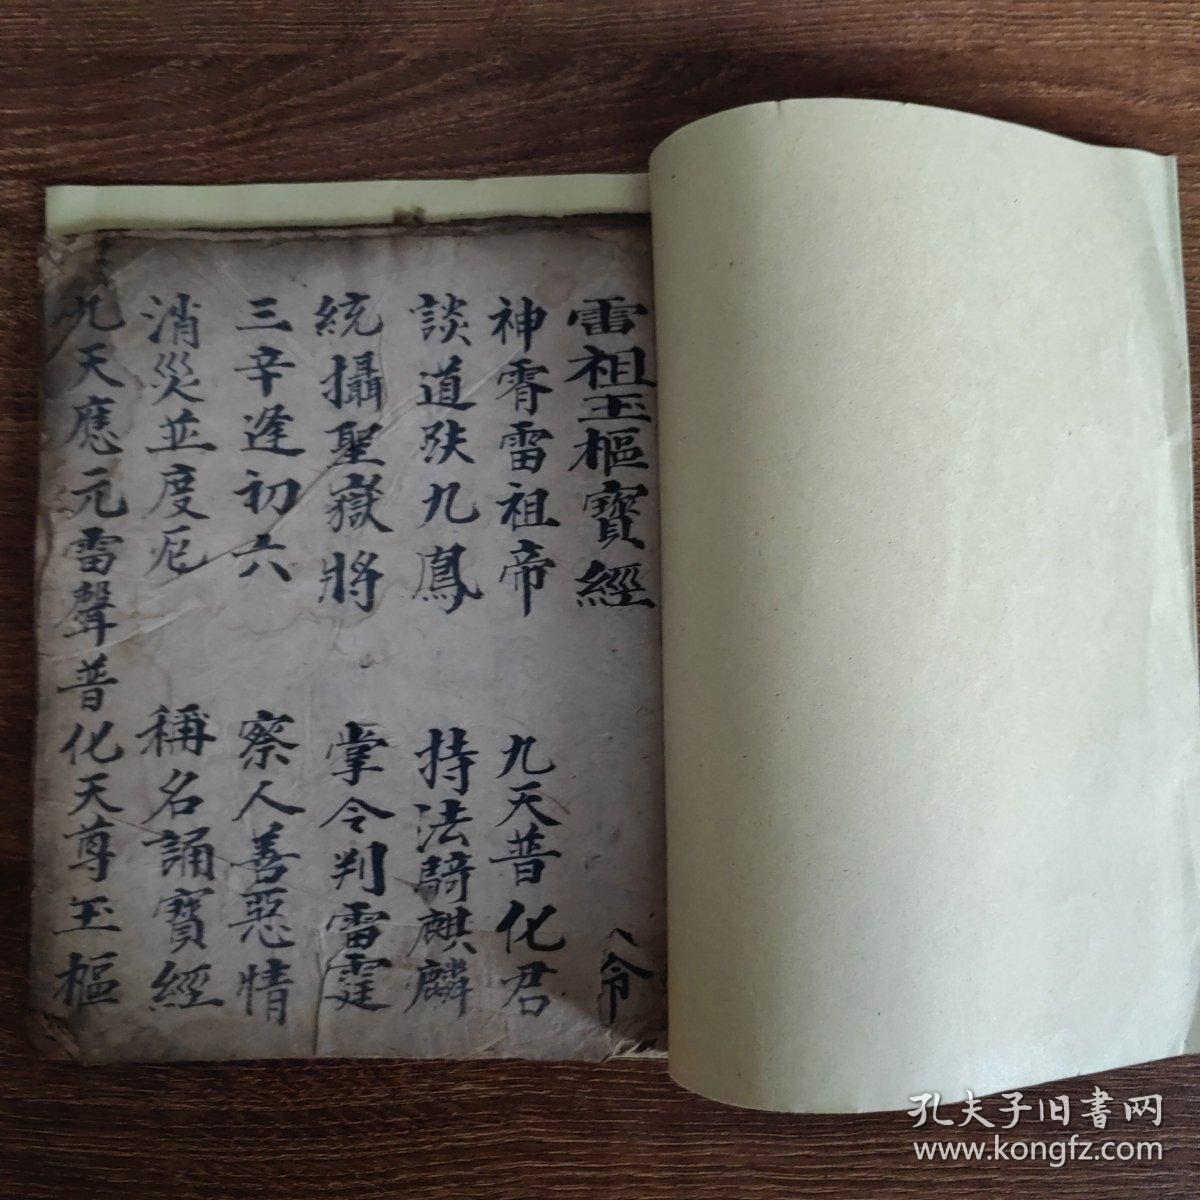 雷祖玉樞寶經
神霄雷祖帝 九天普化君
談道趺九鳳 持法騎麒麟
統攝聖嶽將 掌令判雷霆
三辛逢初六 察人善惡情
消災並度厄 稱名誦寶經
九天應元雷聲普化天尊玉樞
孔夫子旧書网
www.kongfz.com